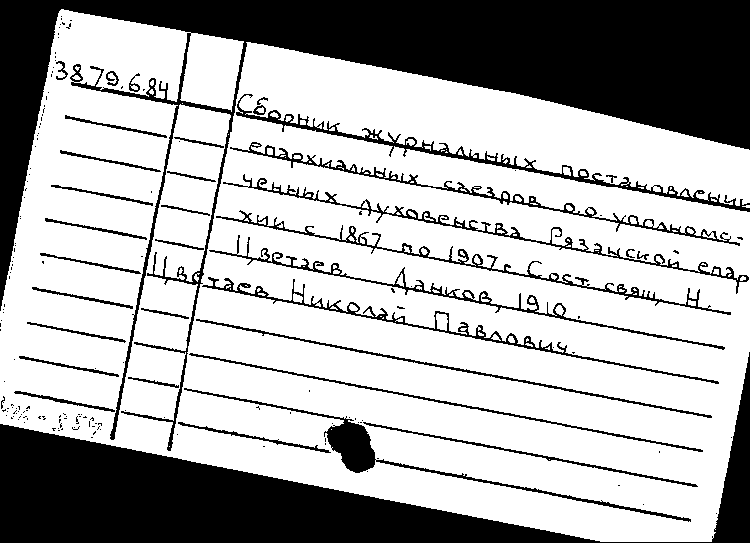 38.79.6.84
Сборник журнальных постановлений
епархиальных съездов о.о. уполномо-
ченных духовенства Рязанской епар
хии с 1867 по 1907г. Сост. свящ. Н.
Цветаев. Данков, 1910.
Цветаев, Николай Павлович.